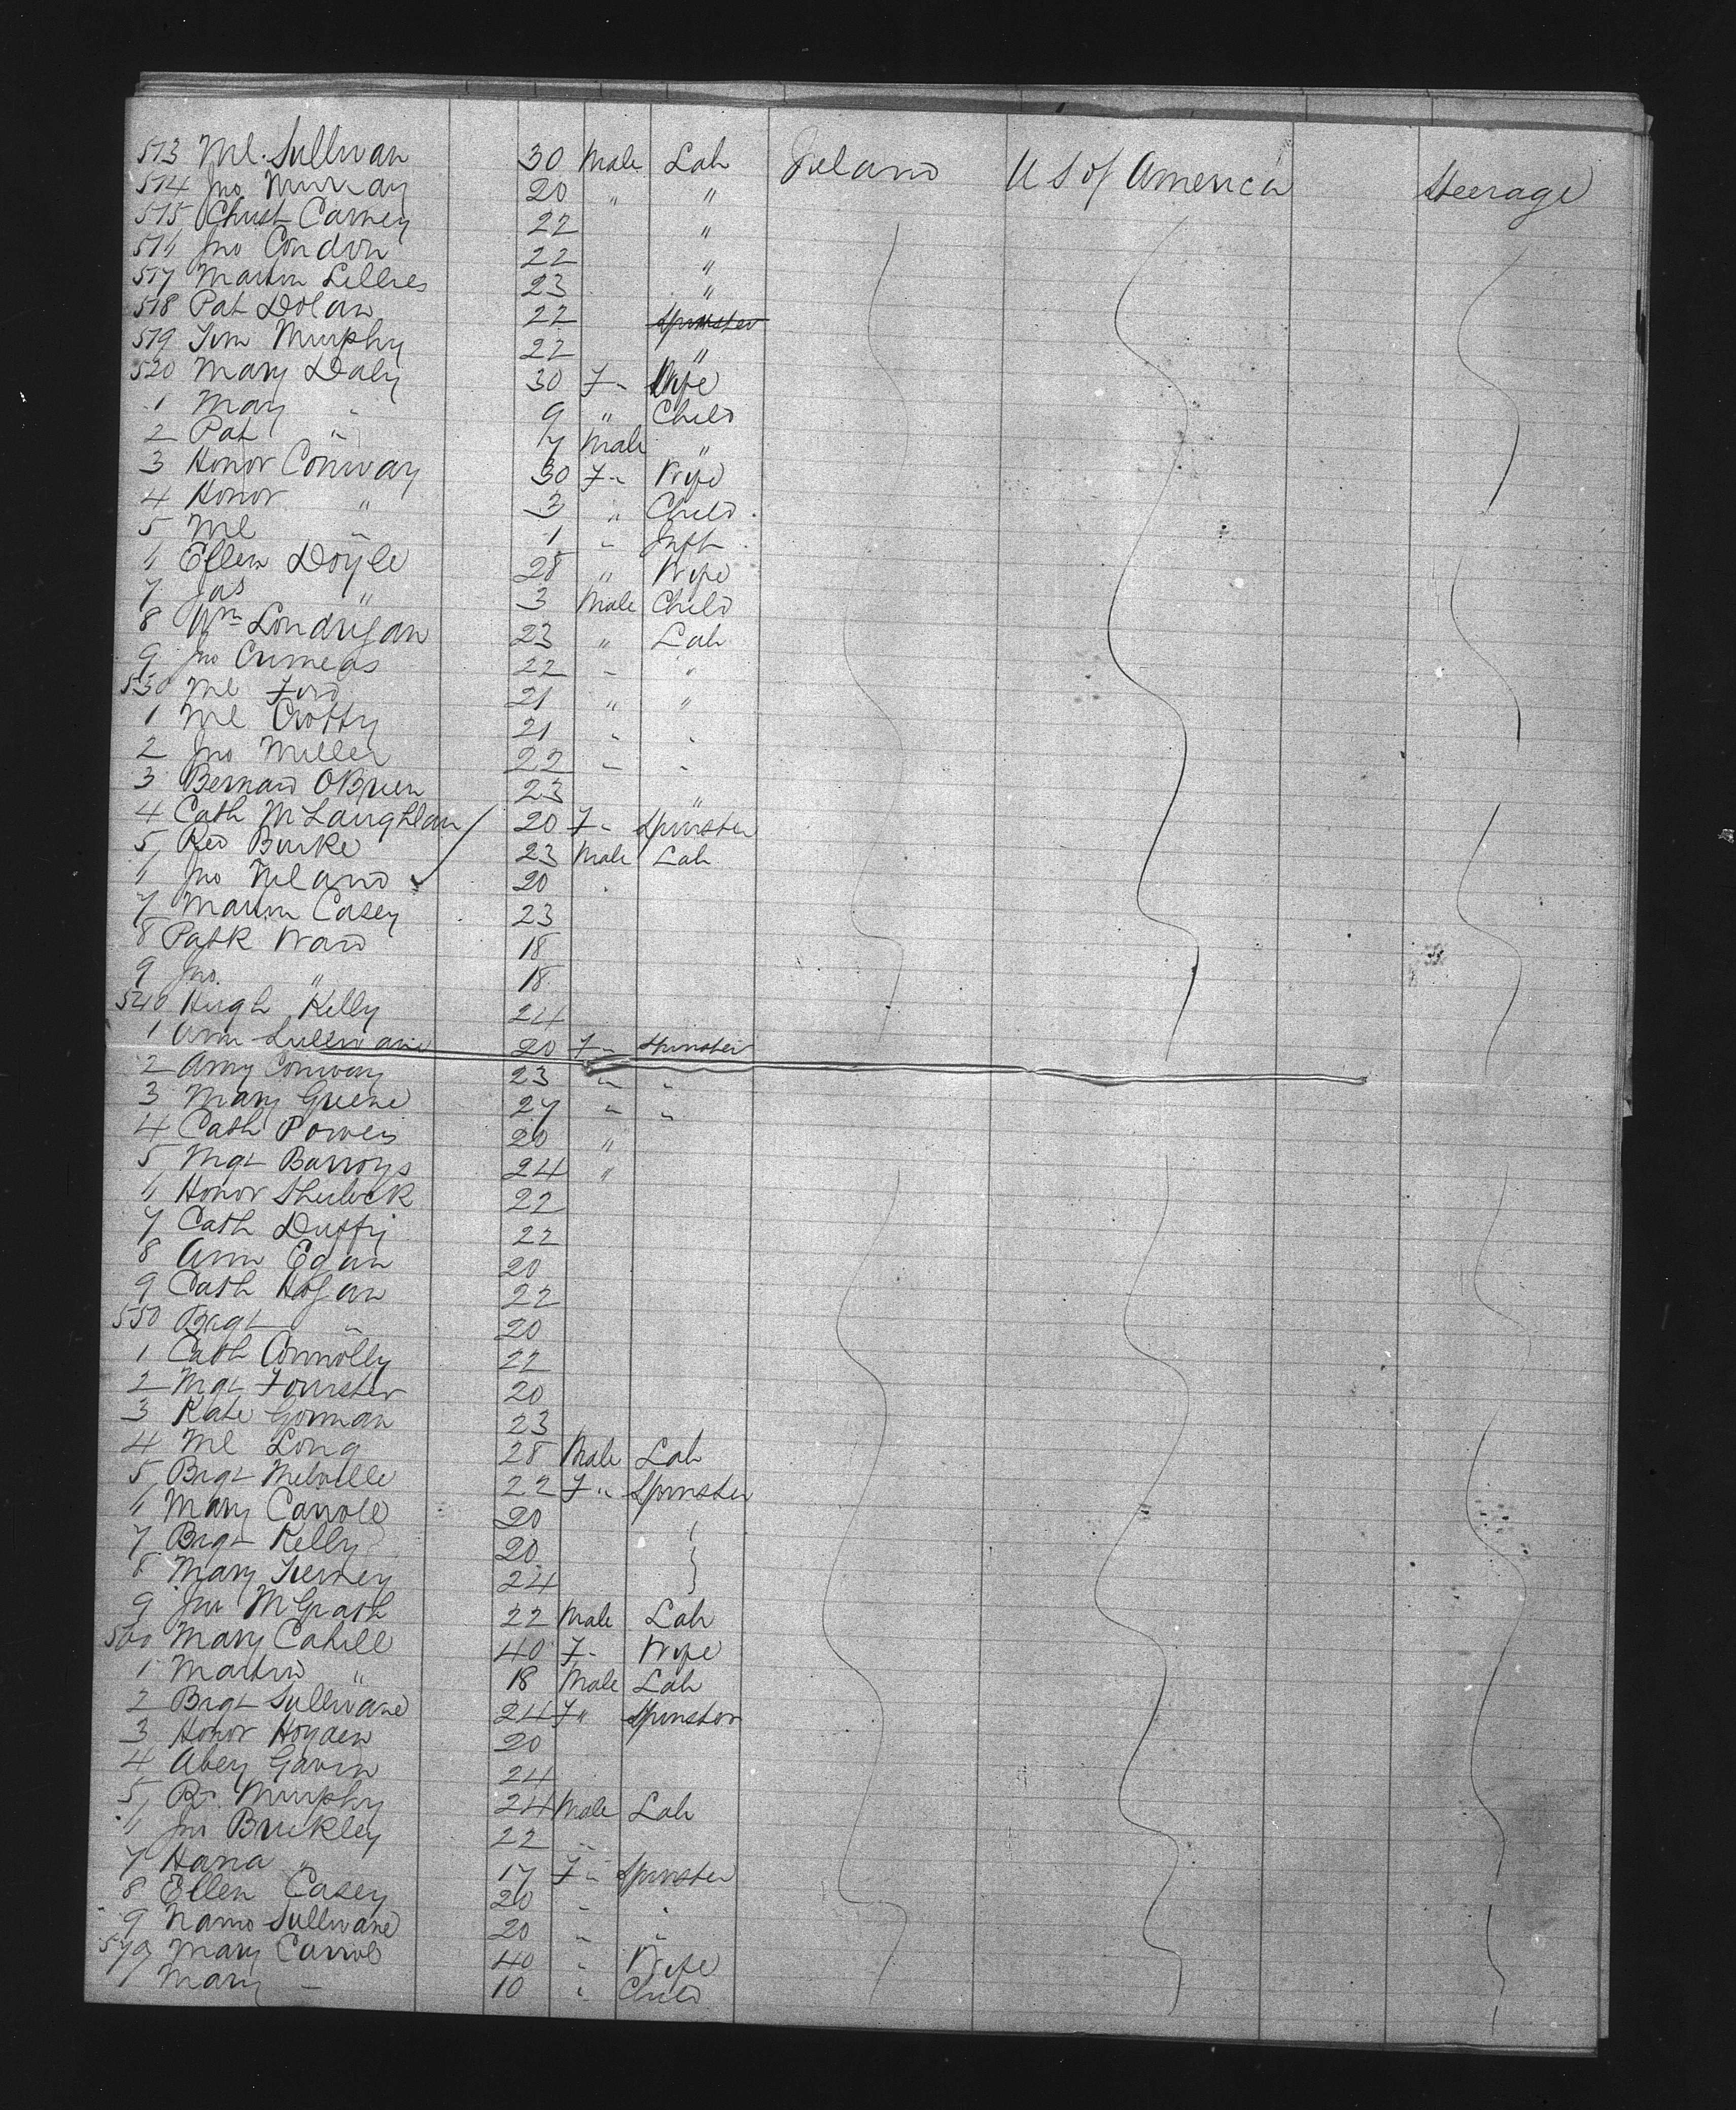 513 Ml. Sullivan 30 Male Lab Ireland U S of America Steerage
514 Jno Murray 20 " "
515 Christ Carney 22 "
516 Jno Condon 22 "
517 Martin Lillies 23 "
518 Pat Dolan 22 Spinster
519 Tim Murphy 22 "
520 Mary Daly 30 F " Wife
1 May " 9 " Child
2 Pat " 7 Male "
3 Honor Conway 30 F " Wife
4 Honor " 3 " Child
5 Ml " 1 " Inft
6 Ellen Doyle 28 " Wife
7 Jas " 3 Male Child
8 Wm Londrigan 23 " Lab
9 Jno 22 " "
530 Ml Ford 21 " "
1 Ml Crotty 21 " "
2 Jno Miller 22 " "
3 Bernard OBrien 23 "
4 Cath McLaughlan 20 F " Spinster
5 Red Burke 23 Male Lab
6 Jno 20 "
7 Martin Casey 23
8 Patk Ward 18
9 Jno. " 18
540 Hugh Kelly 24
1 Ann Sullivane 20 F " Spinster
2 Amy Conway 23 " "
3 Mary Greene 27 " "
4 Cath Powers 20 "
5 Mgt 24 "
6 Honor Sherlock 22
7 Cath Duffy 22
8 Ann Egan 20
9 Cath Hogan 22
550 Brgt " 20
1 Cath Connolly 22
2 Mgt Fourster 20
3 Kate Gorman 23
4 Ml Long 28 Male Lab
5 Brgt Melville 22 F " Spinster
6 Mary Carroll 20
7 Brgt Kelly 20
8 Mary Tierney 24
9 Jno McGrath 22 Male Lab
560 Mary Cahill 40 F " Wife
1 Martin " 18 Male Lab
2 Brgt Sullivane 24 F " Spinster
3 Honor Hogden 20
4 Abey Gavin 24
5 Murphy 24 Male Lab
6 Jno Buckley 22 "
7 Hana " 17 F " Spinster
8 Ellen Casey 20 " "
9 Sullivane 20 " "
570 Mary Carrol 40 " Wife
1 Mary " 10 " Child